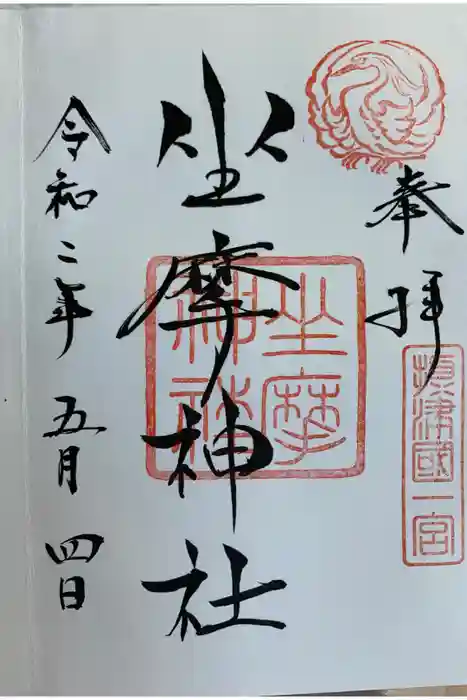 奉拝
摂津國一宮
坐摩神社
坐摩
神社
令和二年五月四日